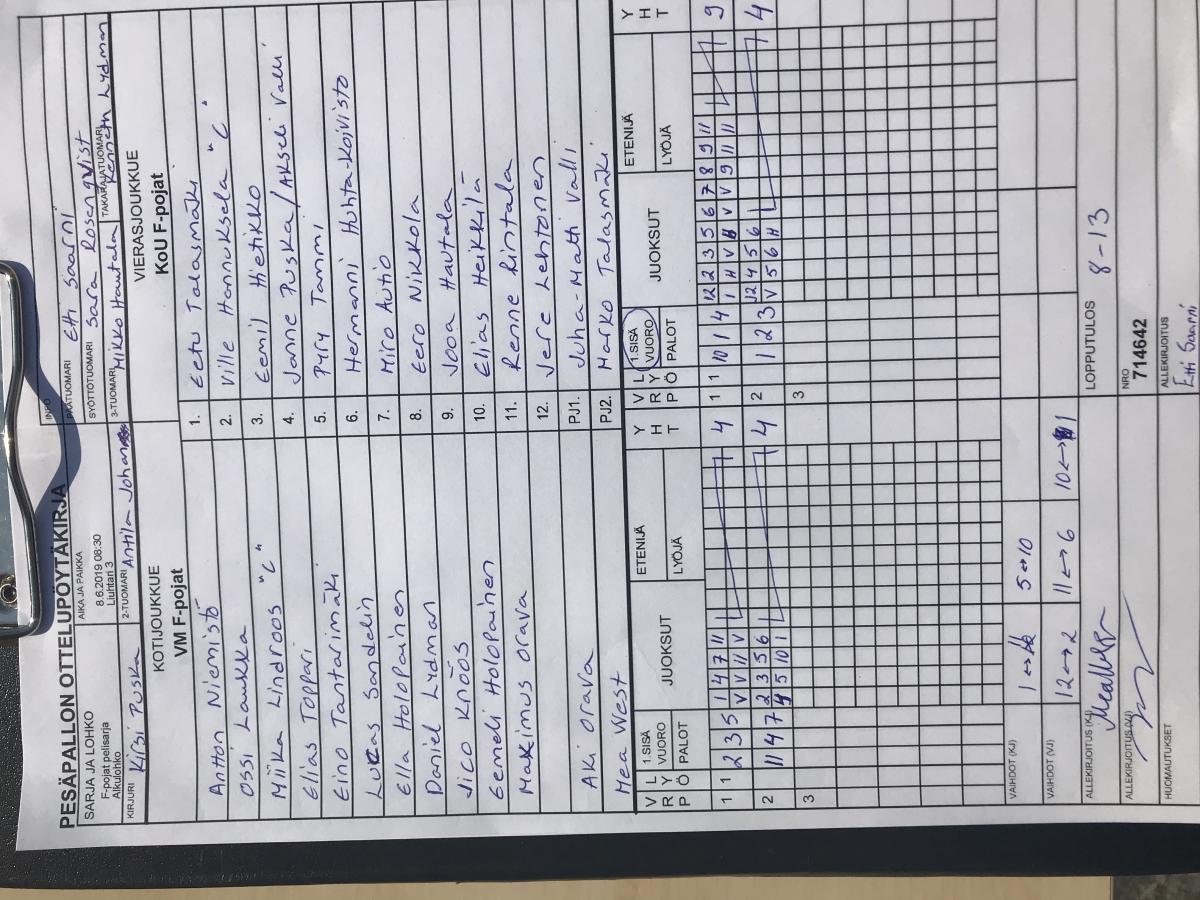 PESÄPALLON OTTELUPÖYTÄKIRJA
SARJA JA LOHKO
F-pojat pelisarja
Alkulohko
AIKA JA PAIKKA
8.6.2019 08:30
Liuhtari 3
INFO
PÄÄTUOMARI Etti Saarni
SYÖTTÖTUOMARI Sara Rosenqvist
KIRJURI Kirsi Puska
2-TUOMARI Anttila Johannes
3-TUOMARI Mikko Hautala
TAKARAJATUOMARI Kenneth Lydman
KOTIJOUKKUE
VM F-pojat
VIERASJOUKKUE
KoU F-pojat
Antton Niemistö 1. Eetu Talasmäki
Ossi Laukka 2. Ville Hannuksela "C"
Miika Lindroos "C" 3. Eemil Hietikko
Elias Toppari 4. Janne Puska/Akseli Valli
Eino Tantarimäki 5. Pyry Tammi
Lucas Sandelin 6. Hermanni Huhta-Koivisto
Ella Holopainen 7. Miro Autio
Daniel Lydman 8. Eero Nikkola
Jico Knöös 9. Jooa Hautala
Eemeli Holopainen 10. Elias Heikkilä
Maximus Orava 11. Renne Rintala
12. Jere Lehtonen
Aki Orava PJ1. Juha-Matti Valli
Mea West PJ2. Marko Talasmäki
V R P L Y Ö 1.SISÄ VUORO PALOT JUOKSUT ETENIJÄ LYÖJÄ Y H T
V R P L Y Ö 1.SISÄ VUORO PALOT JUOKSUT ETENIJÄ LYÖJÄ Y H T
1 1 2 3 5 1 4 7 11 4
V V 11 V
1 1 10 1 4 12 2 3 5 6 7 8 9 11 9
1 H V H V V 9 11 11
2 11 4 7 2 3 5 6 4
4 5 10 1
2 1 2 3 12 4 5 6 4
V 5 6 H
3
3
VAIHDOT (KJ) 5↔10
VAIHDOT (VJ) 12↔2 11↔6
ALLEKIRJOITUS (KJ)
LOPPUTULOS 8-13
ALLEKIRJOITUS (VJ)
NRO
714642
HUOMAUTUKSET
ALLEKIRJOITUS
Etti Saarni